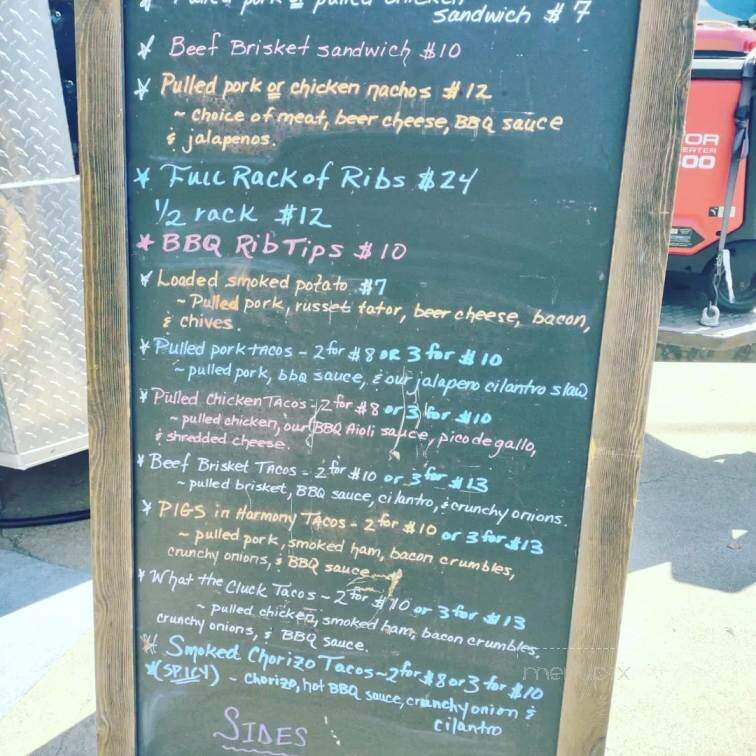 Pulled pork or pulled chicken
sandwich $7
Beef Brisket sandwich $10
Pulled pork or chicken nachos $12
~ choice of meat, beer cheese, BBQ sauce
& jalapenos.
Full Rack of Ribs $24
1/2 rack $12
BBQ Rib Tips $10
Loaded smoked potato $7
~ Pulled pork, russet tator, beer cheese, bacon,
& chives.
Pulled pork tacos - 2 for $8 or 3 for $10
~ pulled pork, bbq sauce, & our jalapeno cilantro slaw
Pulled Chicken Tacos - 2 for $8 or 3 for $10
~ pulled chicken, our BBQ Aioli sauce, pico de gallo,
& shredded cheese.
Beef Brisket Tacos - 2 for $10 or 3 for $13
~ pulled brisket, BBQ sauce, cilantro, & crunchy onions.
PIGS in Harmony Tacos - 2 for $10 or 3 for $13
~ pulled pork, smoked ham, bacon crumbles,
crunchy onions, & BBQ sauce
What the Cluck Tacos ~ 2 for $10 or 3 for $13
~ pulled chicken, smoked ham, bacon crumbles,
crunchy onions, & BBQ sauce.
Smoked Chorizo Tacos ~ 2 for $8 or 3 for $10
(SPICY) ~ chorizo, hot BBQ sauce, crunchy onion &
cilantro
SIDES
OR
ERTER
00